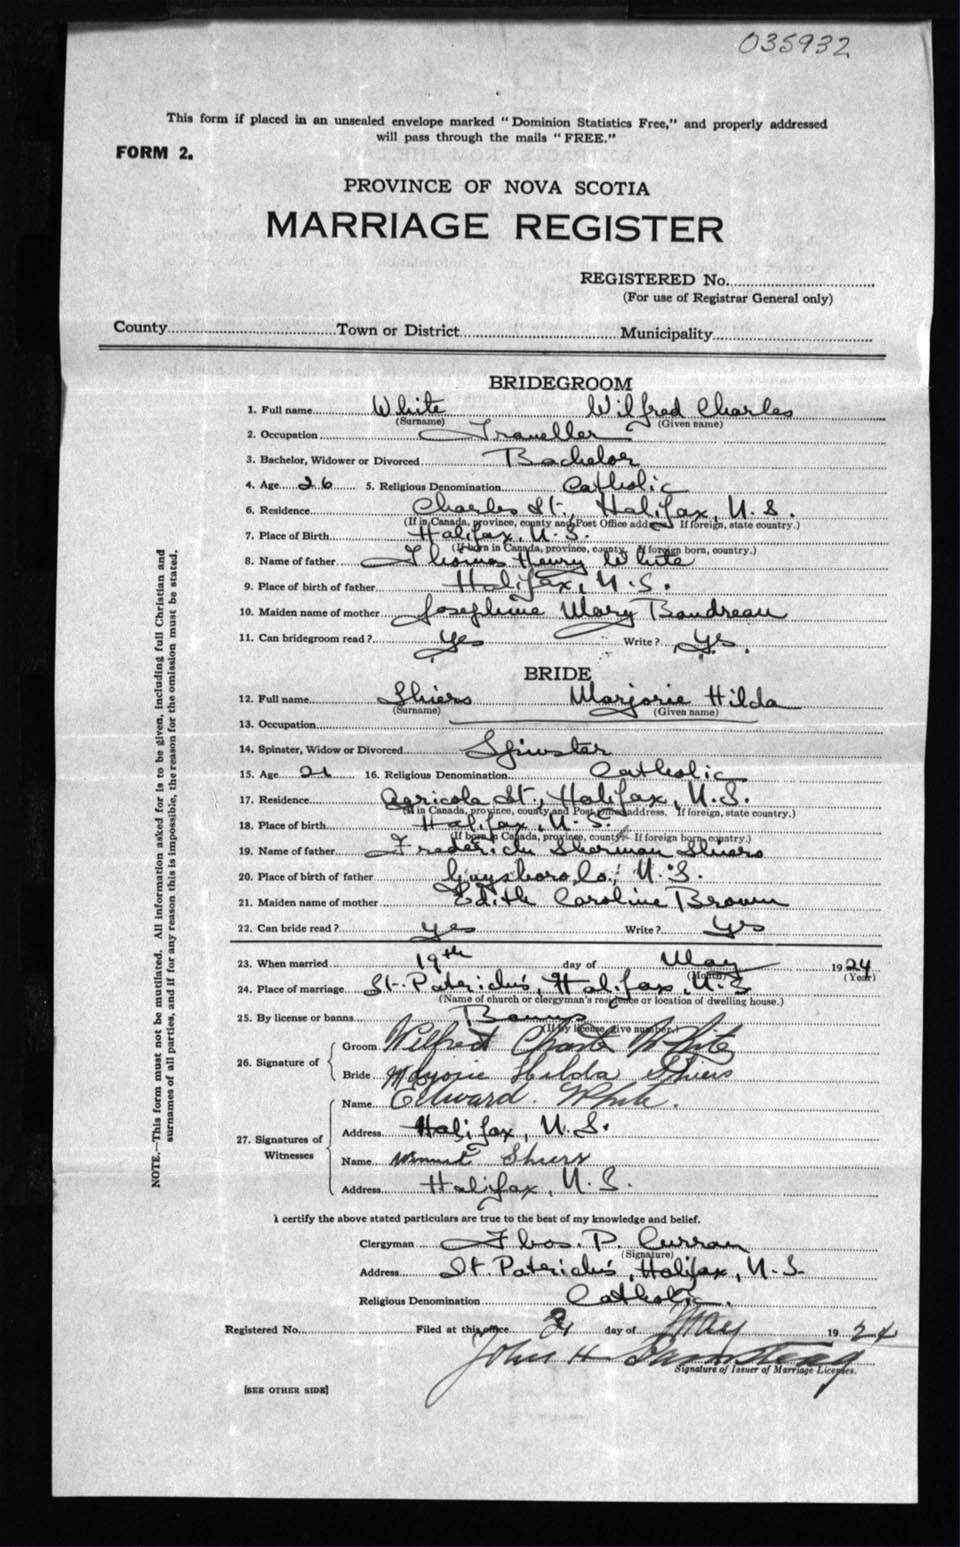 035932
This form if placed in an unsealed envelope marked "Dominion Statistics Free," and properly addressed
will pass through the mails "FREE."
FORM 2.
PROVINCE OF NOVA SCOTIA
MARRIAGE REGISTER
REGISTERED No.
(For use of Registrar General only)
County Town or District Municipality
BRIDEGROOM
1. Full name White Wilfred Charles
(Surname) (Given name)
2. Occupation Traveller
3. Bachelor, Widower or Divorced Bachelor
4. Age 26 5. Religious Denomination Catholic
6. Residence Charles St., Halifax, N.S.
(If in Canada, province, county and Post Office address. If foreign, state country.)
7. Place of Birth Halifax, N.S.
(If born in Canada, province, county. If foreign born, country.)
8. Name of father Thomas Henry White
9. Place of birth of father Halifax, N.S.
10. Maiden name of mother Josephine Mary Boudreau
11. Can bridegroom read? Yes Write? Yes.
BRIDE
12. Full name Shiers Marjorie Hilda
(Surname) (Given name)
13. Occupation
14. Spinster, Widow or Divorced Spinster
15. Age 21 16. Religious Denomination Catholic
17. Residence Agricola St., Halifax, N.S.
(If in Canada, province, county and Post Office address. If foreign, state country.)
18. Place of birth Halifax, N.S.
(If born in Canada, province, county. If foreign born, country.)
19. Name of father Frederick Sherman Shiers
20. Place of birth of father Guysboro, Co., N.S.
21. Maiden name of mother Edith Caroline Brown
22. Can bride read? Yes Write? Yes
23. When married 19th day of May 1924
(Month) (Year)
24. Place of marriage St. Patrick's, Halifax, N.S
(Name of church or clergyman's residence or location of dwelling house.)
25. By license or banns Banns
(If by license, give number.)
26. Signature of
Groom Wilfred Charles White
Bride Marjorie Hilda Shiers
27. Signatures of Witnesses
Name Edward White.
Address Halifax, N.S.
Name Shiers
Address Halifax, N.S.
I certify the above stated particulars are true to the best of my knowledge and belief.
Clergyman Thos. P. Curran
(Signature)
Address St. Patrick's, Halifax, N.S.
Religious Denomination Catholic.
Registered No. Filed at this office 31 day of May 1924
John H
Signature of Issuer of Marriage Licenses.
[SEE OTHER SIDE]
NOTE.—This form must not be mutilated. All information asked for is to be given, including full Christian and
surnames of all parties, and if for any reason this is impossible, the reason for the omission must be stated.